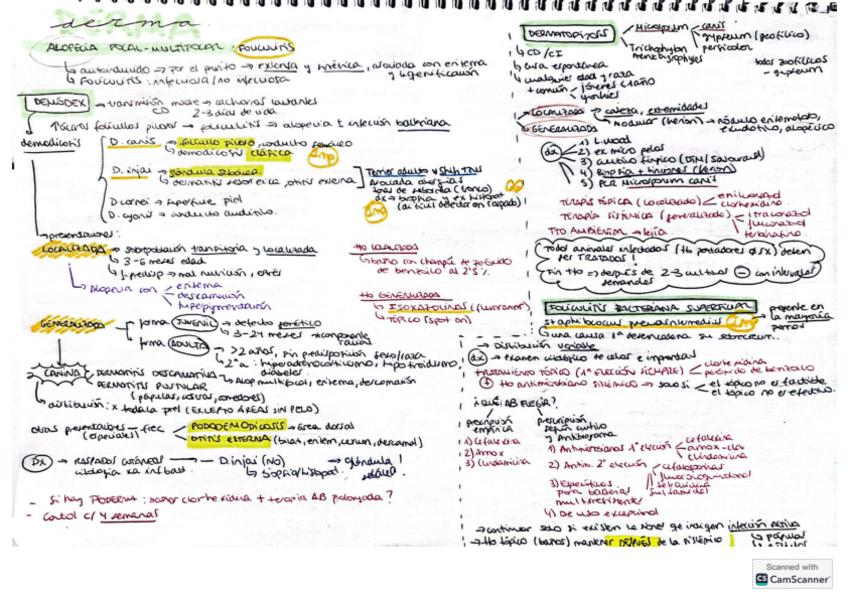 derma
ALOPECIA FOCAL-MULTIFOCAL: FOLICULITIS
↳ autoinducido → por el prurito → extensa y simétrica, asociada con eritema y liquenificación
↳ FOLICULITIS: infecciosa / no infecciosa
DEMODEX → transmisión madre → cachorros lactantes
CD 2-3 días de vida
demodicosis
D. canis → folículo piloso, conducto sebáceo
↳ demodicosis clásica
imp
D. injai → glándula sebácea
↳ dermatitis seborreica, otitis externa
Terrier adulto y Shih Tzu
dx → biopsia y ex histopat
D. cornei → superficie piel
D. cyonis → conducto auditivo.
↳ presentaciones:
LOCALIZADA → sobrepoblación transitoria y localizada
↳ 3-6 meses edad
↳ predisp → mal nutrición, estrés
↳ alopecia con eritema
descamación
hiperpigmentación
tto LOCALIZADA
↳ baño con champú de peróxido de benzoilo al 2'5 %
tto GENERALIZADA
↳ ISOXAZOLINAS (fluralaner)
↳ TÓPICO (spot on)
GENERALIZADA
forma JUVENIL → defecto genético
↳ 3-24 meses → componente racial
forma ADULTA → >2 años, sin predisposición sexo/raza
↳ 2ª a: hiperadrenocorticismo, hipotiroidismo, diabetes
CANINA
DERMATITIS DESCAMATIVA → Alop multifocal, eritema, descamación
DERMATITIS PUSTULAR
(pápulas, costras, comedones)
↳ distribución: x toda la piel (EXCEPTO ÁREAS SIN PELO)
otras presentaciones → frec
(especiales)
PODODEMODICOSIS → área dorsal
OTITIS EXTERNA (bilat, eritem, cerum, descamat)
Dx → RASPADOS CUTÁNEOS → D. injai (NO) → glándula sebácea!
citología
↳ biopsia/histopat.
- Si hay PIODERMA: baños clorhexidina + terapia AB prolongada?
- Control c/ 4 semanas
DERMATOFITOSIS
Microsporum canis
gypseum (geofílico)
persicolor
Trichophyton mentagrophytes
todos zoofílicos
- gypseum
↳ CD / CI
↳ cura espontánea
↳ cualquier edad y raza
+ común jóvenes
yorkies
LOCALIZADA → cabeza, extremidades
↳ nodular (kerion) → nódulo eritematoso, exudativo, alopécico
GENERALIZADA
dx
1) L. Wood
2) ex micro pelos
3) cultivo fúngico (DTM / Sabouraud)
4) Biopsia + tinciones (kerion)
5) PCR Microsporum canis
TERAPIA TÓPICA (localizado) enilconazol
clorhexidina
TERAPIA SISTÉMICA (generalizado) itraconazol
fluconazol
terbinafina
TTO AMBIENTAL → lejía
Todos animales infectados (tto portadores Ø SX) deben ser TRATADOS!
Fin tto → después de 2-3 cultivos ⊖ con intervalos semanales
FOLICULITIS BACTERIANA SUPERFICIAL
Staphilococcus pseudointermedius imp → presente en la mayoría perros
↳ una causa 1ª desencadena su sobrecrec.
→ Distribución variable
dx → examen citológico de calcos e improntas
TRATAMIENTO TÓPICO (1ª ELECCIÓN SIEMPRE) clorhexidina
peróxido de benzoilo
+ tto antimicrobiano sistémico → solo si el tópico no es factible
el tópico no es efectivo.
¿QUÉ AB ELEGIR?
prescripción empírica
1) Cefalexia
2) Amox
3) Clindamicina
prescripción según cultivo y Antibiograma
1) Antimicrobianos 1ª elección cefalexia
amox-clav
clindamicina
2) Antim. 2ª elección cefalosporinas
fluoroquinolonas
tetraciclina
sulfamidas
3) Específicos para bacterias multirresistentes
4) De uso excepcional
→ continuar solo si existen lesiones que indiquen infección activa
→ tto tópico (baños) mantener DESPUÉS de la sistémica
↳ pápulas
Scanned with
CS CamScanner